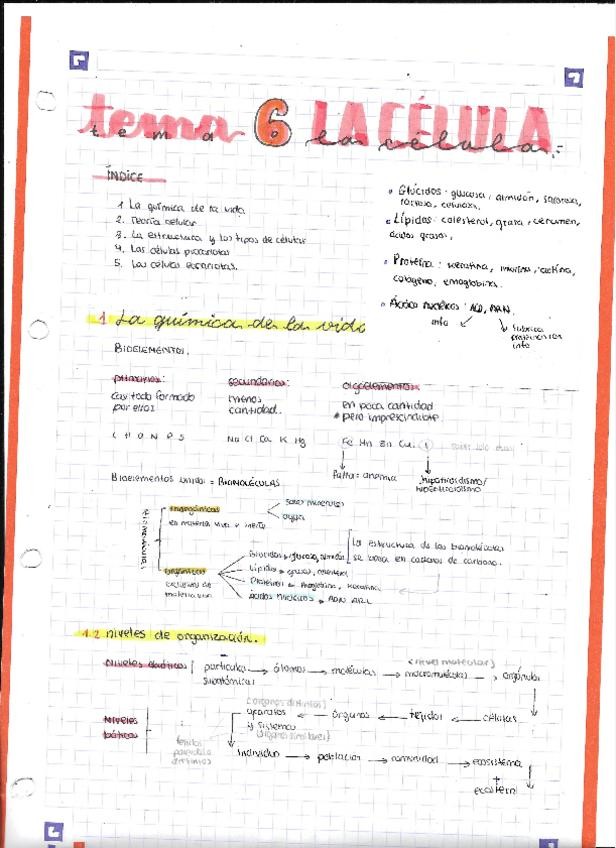 tema 6 LA CÉLULA
tema 6 la célula.
ÍNDICE
1. La química de la vida
2. Teoría celular
3. La estructura y los tipos de célular
4. Las células procariotas
5. Las células eucariotas.
• Glúcidos: glucosa, almidón, sacarosa,
lactosa, celulosa,
• Lípidos: colesterol, grasa, cerumen,
ácidos grasos,
• Proteína: keratina, actina,
colágeno, emoglobina.
• Ácidos nucleicos: ADN, ARN.
info
fabrica
proteínas con
info
1 La química de la vida
BIOELEMENTOS.
primarios:
casi todo formado
por ellos
C H O N P S
secundarios:
menos
cantidad.
Na Cl Ca K Mg
oligoelementos
en poca cantidad
* pero imprescindible.
Fe Mn Zn Cu I
Falta: anemia
hipotiroidismo/
Bioelementos unidos = BIOMOLÉCULAS
Biomoléculas
inorgánicas
en materia viva e inerte
sales minerales
agua
orgánicas
exclusivas de
materia viva
Glúcidos glucosa, almidón
Lípidos grasas, colesterol
Proteínas keratina
Ácidos nucleicos ADN ARN
La estructura de las biomoléculas
se basa en cadenas de carbono.
1.2 niveles de organización.
Niveles abióticos
partículas → átomos → moléculas → macromoléculas → orgánulos
subatómicas
(nivel molecular)
Niveles
bióticos
células
tejidos
órganos
aparatos
y sistemas
individuo → población → comunidad → ecosistema